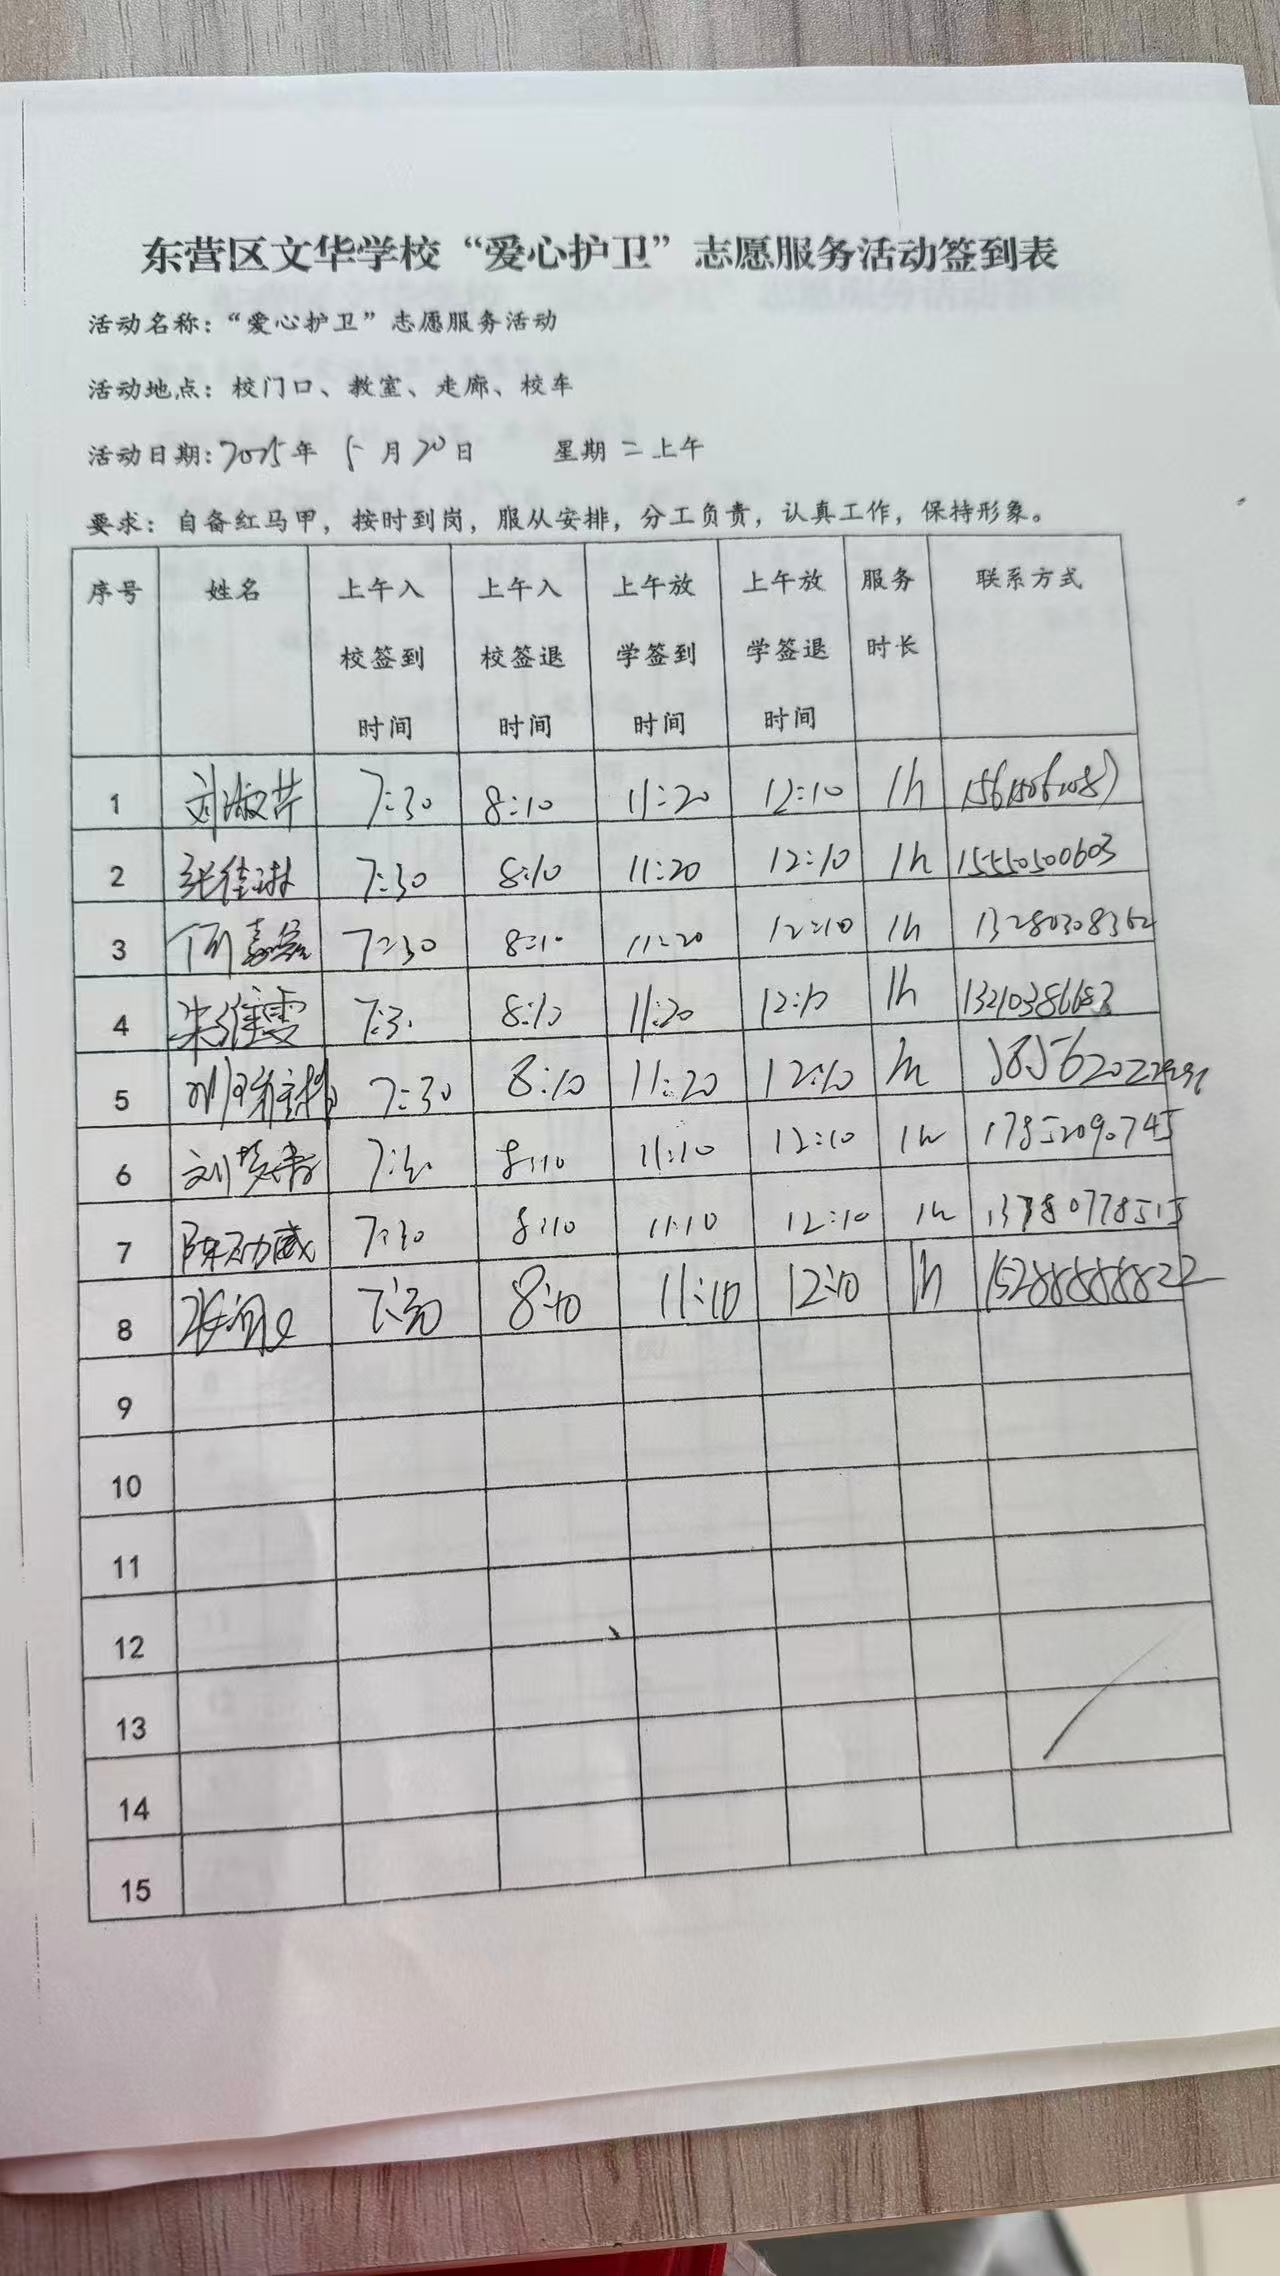 东营区文华学校“爱心护卫”志愿服务活动签到表
活动名称：“爱心护卫”志愿服务活动
活动地点：校门口、教室、走廊、校车
活动日期：2025年 5月20日 星期二上午
要求：自备红马甲，按时到岗，服从安排，分工负责，认真工作，保持形象。
序号 姓名 上午入校签到时间 上午入校签退时间 上午放学签到时间 上午放学签退时间 服务时长 联系方式
1 刘淑芹 7:30 8:10 11:20 12:10 1h
2 张佳琳 7:30 8:10 11:20 12:10 1h 15550500603
3 7:30 8:10 11:20 12:10 1h 13280308362
4 朱维雯 7:3. 8:10 11:20 12:10 1h 13210386683
5 7:30 8:10 11:20 12:10 1h
6 8:10 11:10 12:10 1h 17852090745
7 7:30 8:10 11:10 12:10 1h 13780778515
8 7:30 8:10 11:10 12:10 1h
9
10
11
12
13
14
15